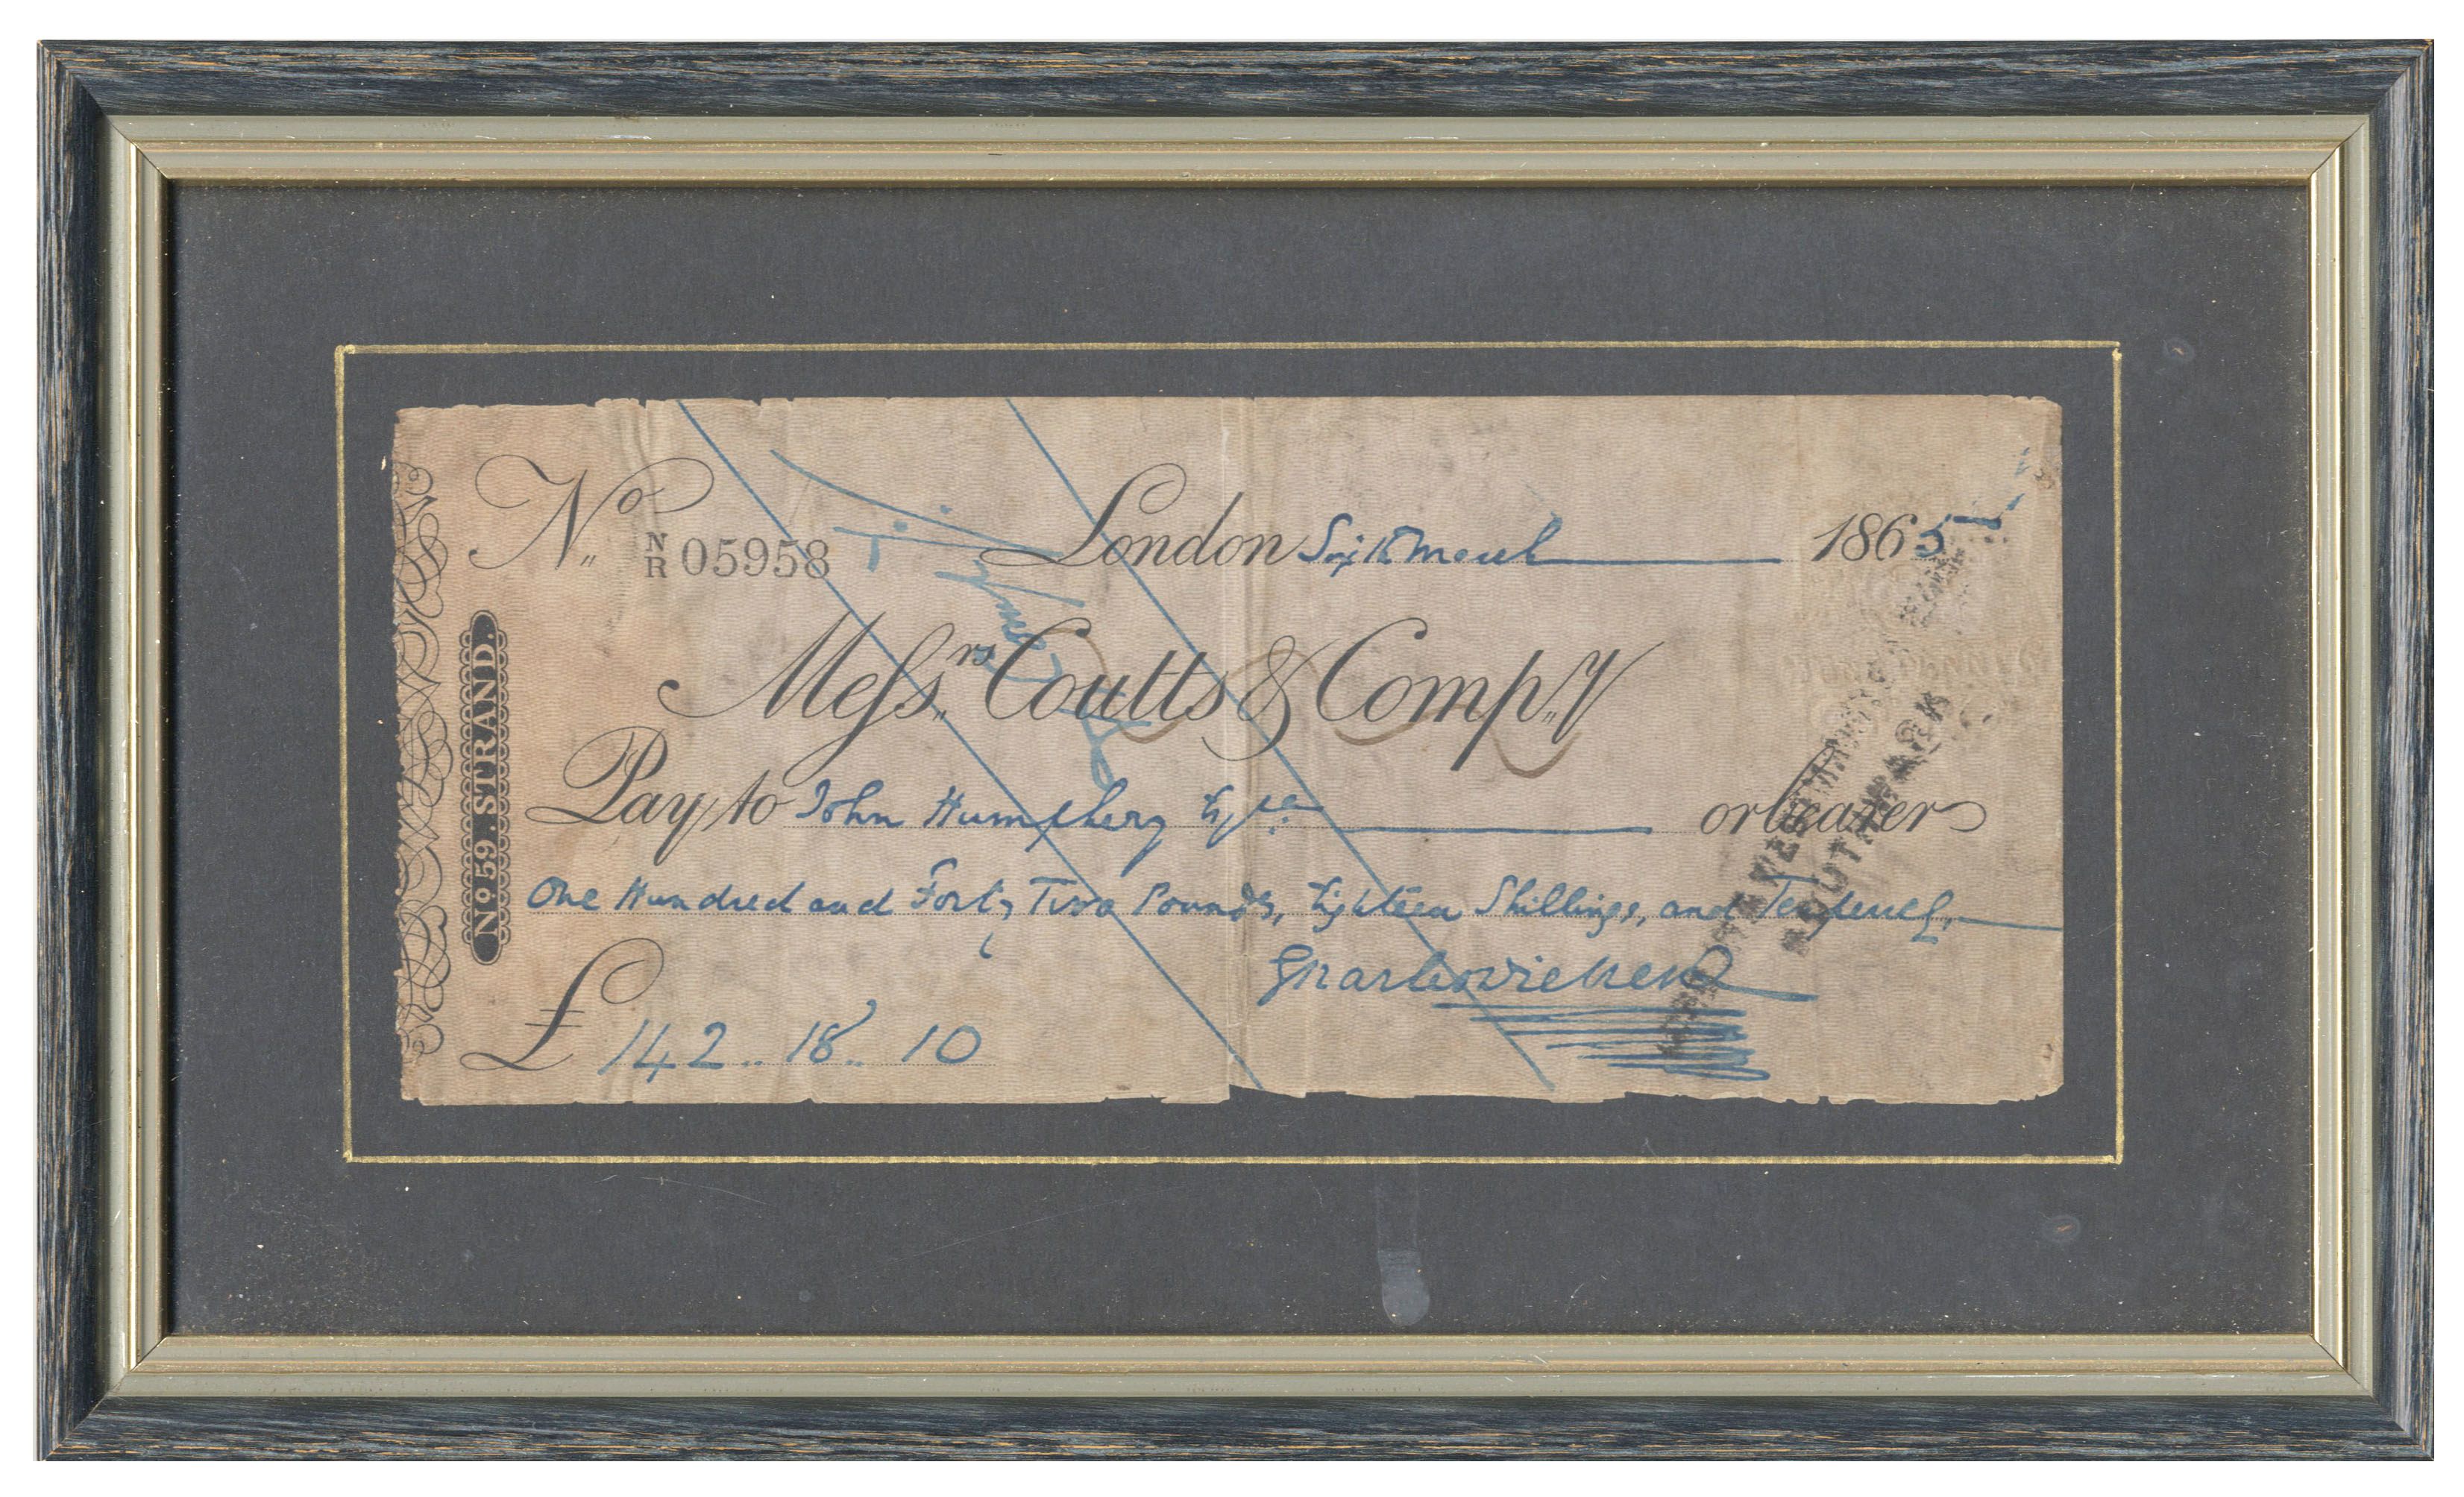 No. N/R 05958
London Sixth March 1865
Messrs. Coutts & Compy.
No 59. STRAND.
Pay to John Humphery Esqre. or bearer
One Hundred and Forty Two Pounds, Eighteen Shillings, and Tenpence.
Charles Dickens
£ 142.. 18.. 10
LONDON & WESTMINSTER
SOUTHWARK